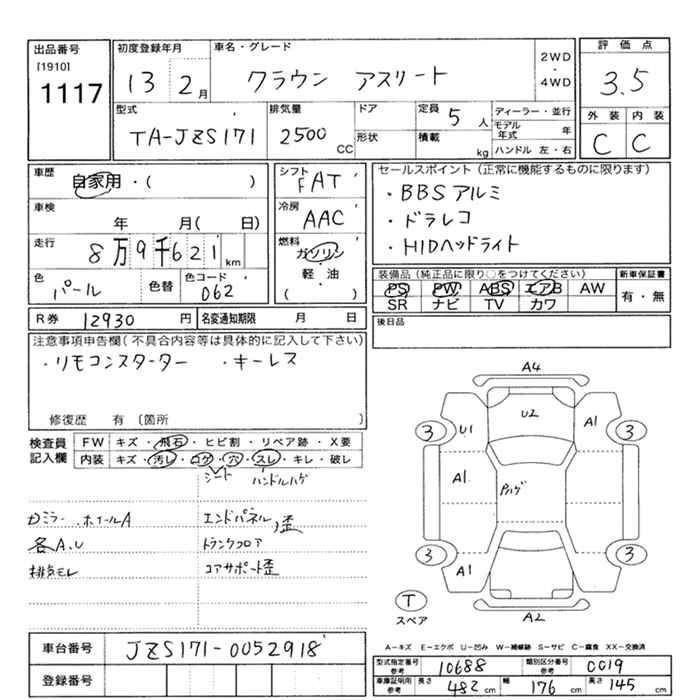 出品番号
[1910]
1117
初度登録年月
13 2月
車名・グレード
クラウン アスリート
2WD
・
4WD
評価点
3.5
外装 内装
C C
型式
TA-JZS171
排気量
2500 CC
ドア
形状
定員 5 人
積載 kg
ディーラー・並行
モデル年式 年
ハンドル 左・右
車歴
自家用・( )
車検
年 月( 日)
走行
8万9千621 km
色
パール
色替
色コード
062
シフト
FAT
冷房
AAC
燃料
ガソリン
・
軽・油
( )
セールスポイント(正常に機能するものに限ります)
・BBSアルミ
・ドラレコ
・HIDヘッドライト
装備品(純正品に限り○をつけてください)
PS PW ABS エアB AW
SR ナビ TV カワ
新車保証書
有・無
R券 12930 円
名変通知期限 月 日
後日品
注意事項申告欄(不具合内容等は具体的に記入して下さい)
・リモコンスターター ・キーレス
修復歴 有 〔箇所
検査員
記入欄
FW キズ・飛石・ヒビ割・リペア跡・X要
内装 キズ・汚レ・コゲ・穴・スレ・キレ・破レ
シート ハンドルハゲ
ミラー、ホイールA
各A、U
排気モレ
エンドパネル歪
トランクフロア
コアサポート歪
A4
U2
U1
A1
3
3
A1
Pハゲ
3
3
A1
A2
T
スペア
車台番号
JZS171-0052918
登録番号
A-キズ E-エクボ U-凹み W-補修跡 S-サビ C-腐食 XX-交換済
型式指定番号
参考
10688
類別区分番号
参考
0019
車庫証明用
参考
長さ 482 cm
幅 176 cm
高さ 145 cm